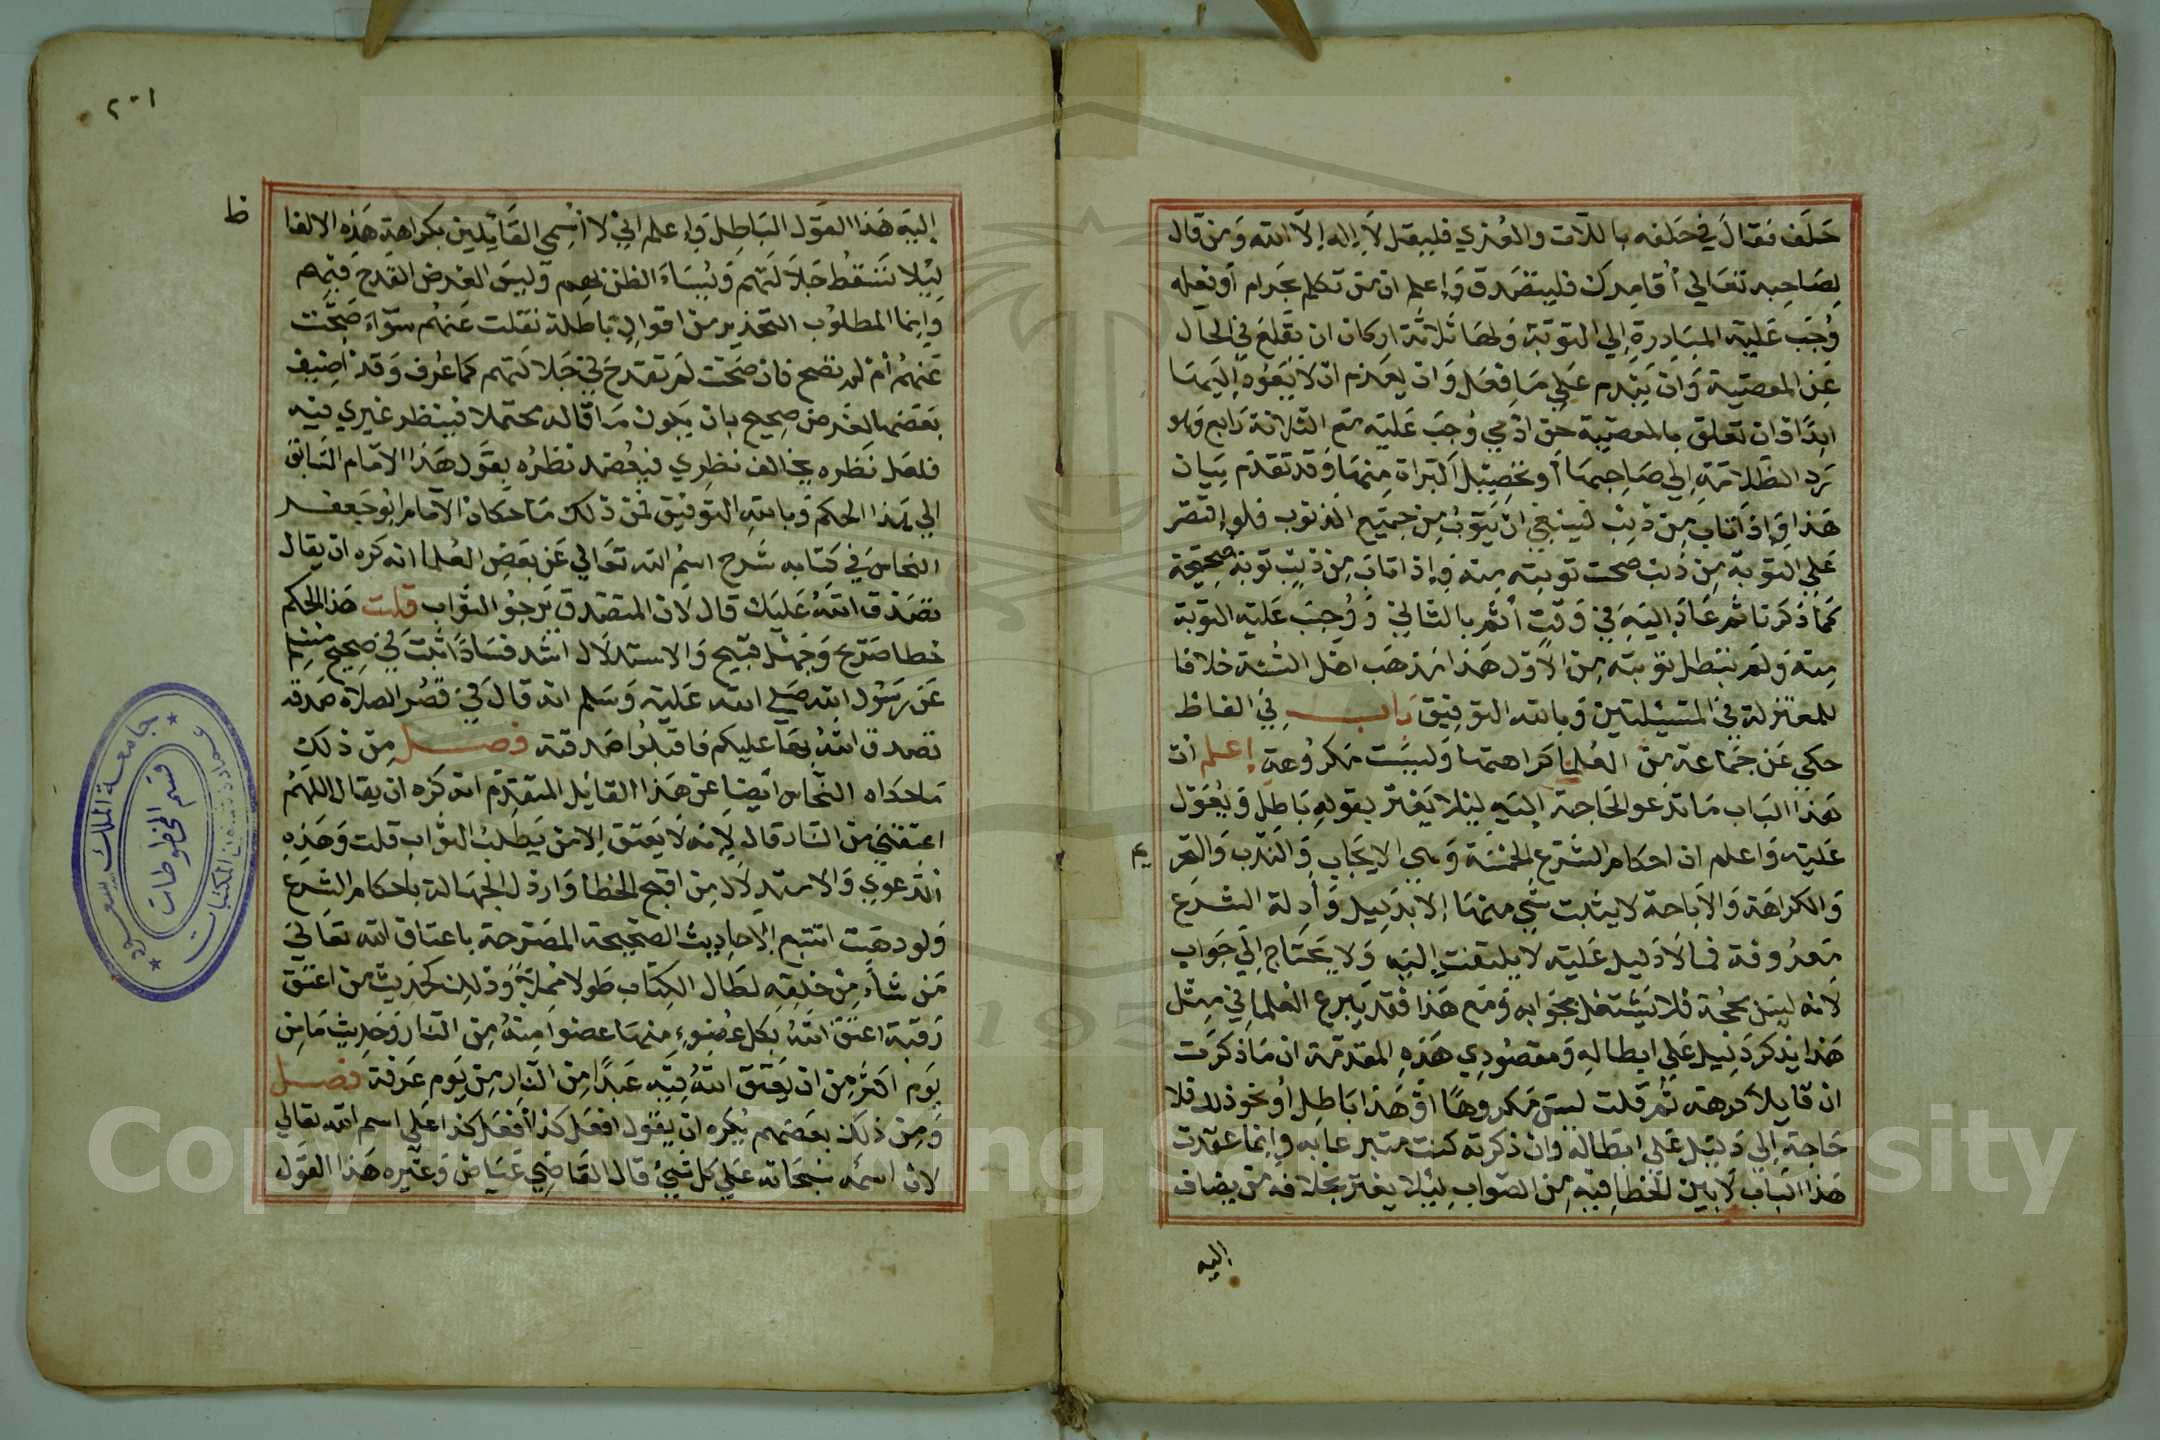 حَلَف فقالَ في حَلفه باللّات والعُزي فليقل لَا إله إلّا الله وَمن قال
لِصَاحِبه تعَالي أُقامِركَ فليتصَدق وَإعلم ان مَن تكلم بحَرام أو فعَله
وُجَب عَليْه المبَادرة إلي التوبَة وَلهَا ثَلاثة اركان ان يَقلعَ في الحَال
عَن المعصيَة وَان يَندم عَلي مَا فعَل وَان يعَزم ان لا يَعُود إليهَا
ابدًا فان تعَلق بالمعصيَة حَق ادمي وُجبَ عَليْه مَع الثلاثة رَابع وَهو
رَد الظلَامَة إلي صَاحِبهَا أو تحصِيل البَراة مِنهَا وَقد تقدم بيَان
هَذا وَإذا تابَ مِن ذنب فينبغي ان يَتوب مِن جميْع الذنوب فلو إقتصَر
عَلي التوبَة مِن ذنب صحت توبته منه وَإذا تابَ مِن ذنبٍ توبة صحِيحَة
كمَا ذكَرنا ثم عَادَ إليهِ في وَقتٍ أثم بالثاني وَوُجبَ عَليْه التوبَة
مِنه وَلَم تبطل توبته مِن الأوّل هَذا مَذهَب اهْل السُّنة خلافا
للمعتزلة في المسْئلتين وَبالله التوفيق بَاب في الفاظ
حكي عَن جَماعة مِن العُلما كراهتهَا وَليسَت مَكرُوهة إعلم ان
هَذا البَاب مَا تدعو الحَاجة إليَه ليلا يَغتر بقولٍ بَاطِل وَيُعَوّل
عَليه وَاعلم ان احكام الشرع الخمسَة وَهي الايجَاب وَالندب وَالتحر
يم
وَالكراهَة وَالأبَاحة لا يثبت شي منهَا إلا بدَليل وَأدِلة الشرع
مَعرُوفة فمَا لا دَليل عَليْه لا يلتفت إليَه وَلا يَحتاج إلي جوَاب
لانه ليسَ بحُجة فلا يَشتغل بجوَابه وَمَع هَذا فقد تَبرع العُلما في مِثل
هَذا بذكر دَليل عَلي ابطاله وَمقصُودِي هَذهِ المقدمَة ان مَا ذكرت
ان قايلا كرهه ثم قلت ليسَ مَكروهًا اوْ هَذا بَاطِل أو نحو ذلك فلا
حَاجة إلي دَليل عَلي ابطاله وان ذكرته كنت متبرعا به وَإنما عقدت
هَذا البَاب لأبين الخطا فيْه مِن الصَواب ليلا يغتر بجلافة من يضاف
اليه
٢٠١
إليَه هَذا القول البَاطِل وَإعلم اني لا أُسمي القَايلين بكراهة هَذِه الالفا
ظ
ليلا تَسقُط جَلالَتهم وَيُسَاءَ الظن بهم وَليسَ الغرض القدح فيهم
وإنما المطلوب التحذير مِن اقوالٍ بَاطلة نقلت عَنهُم سوَاء صَحَّت
عَنهُم أمْ لم تصح فان صَحت لم تقدح في جَلالتهم كما عُرف وَقد أضيف
بَعضها لغرض صحِيح بان يَكون مَا قاله محتملا فينظر غيري فيه
فلعَل نَظره يخالف نظري فيعضد نظرُه بقول هَذا الأمَام السَابق
إلي هَذا الحكم وَبالله التوفيق فمن ذلك مَا حَكاه الأمَام ابُو جَعفر
النحاسَ في كتابه شَرح اسم الله تعَالي عَن بعَض العُلما انه كره ان يقال
تصَدق اللهُ عَليك قال لان المتصَدق يَرجُو الثواب قلت هَذا الحكم
خطا صَريح وَجهل قبيْح وَالاستدلَال اشد فسَادًا ثبتَ في صحِيح مسْلم
عَن رَسُول الله صَلي الله عَليه وَسَلم انه قالَ في قصْر الصلاة صَدقة
تصدق اللهُ بهَا عليكم فاقبلوا صَدقته فصل مِن ذلِك
مَا حكاه النحّاس أيضا عَن هَذا القايل المتقدم انه كره ان يقال اللهُم
اعتقني مِن النَار قال لِإنه لَا يَعتق إلا من يَطلبُ الثواب قلت وَهَذهِ
الدعوي وَالاستدلَال مِن اقبح الخطا وَارذل الجهَالة باحكام الشرع
وَلو ذهَبت اتتبع الأحاديث الصَحيحة المصَرحة باعتاق الله تعَالي
مَن شاءَ مِن خلقِه لطَال الكتاب طولا مُمِلاً وَذلك كحَديث مَن اعتَق
رَقبة اعتقَ اللهُ بكل عضوٍ مِنهَا عضوا مِنه مِن النَار وَحَديث مَا مِن
يَوم أكثر مِن ان يَعتق اللهُ فيه عَبدًا مِن النَّار مِن يَوم عَرفة فصل
وَمِن ذلك بعَضهم يُكره ان يقول افعَل كذا أفعَل كذا عَلي اسم الله تعَالي
لان اسمَه سُبحَانه عَلي كل شيْ قال القَاضي عيَاض وَغيره هَذا القول
جامعة الملك سعود
عمادة شؤون المكتبات
قسم المخطوطات
Copyright © King Saud University
195